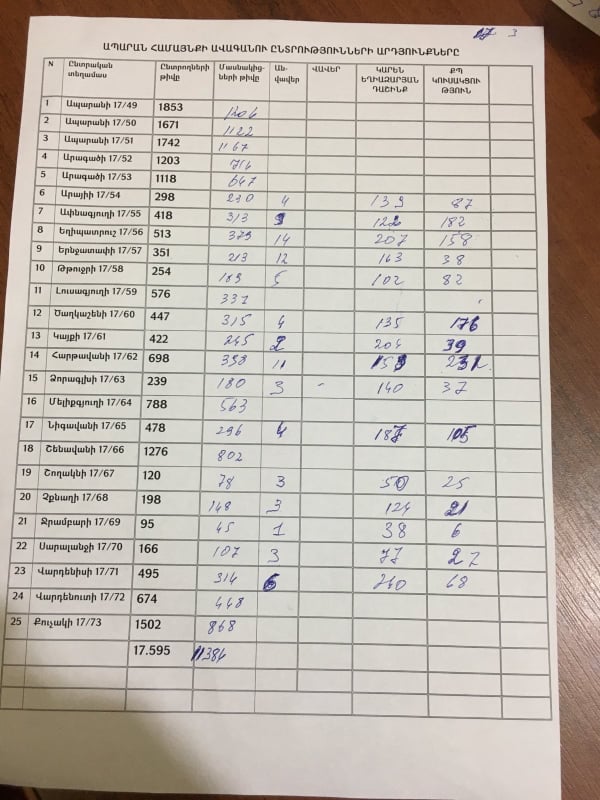 17 3
ԱՊԱՐԱՆ ՀԱՄԱՅՆՔԻ ԱՎԱԳԱՆՈՒ ԸՆՏՐՈՒԹՅՈՒՆՆԵՐԻ ԱՐԴՅՈՒՆՔՆԵՐԸ
N Ընտրական տեղամաս Ընտրողների թիվը Մասնակից-ների թիվը Ան-վավեր ՎԱՎԵՐ ԿԱՐԵՆ ԵՂԻԱԶԱՐՅԱՆ ԴԱՇԻՆՔ ՔՊ ԿՈՒՍԱԿՑՈՒ ԹՅՈՒՆ
1 Ապարանի 17/49 1853 1204
2 Ապարանի 17/50 1671 1122
3 Ապարանի 17/51 1742 1167
4 Արագածի 17/52 1203 714
5 Արագածի 17/53 1118 647
6 Արայիի 17/54 298 230 4 139 87
7 Ափնագյուղի 17/55 418 313 9 122 182
8 Եղիպատրուշ 17/56 513 379 14 207 158
9 Երնջատափի 17/57 351 213 12 163 38
10 Թթուջրի 17/58 254 189 5 102 82
11 Լուսագյուղի 17/59 576 331
12 Ծաղկաշենի 17/60 447 315 4 135 176
13 Կայքի 17/61 422 245 2 204 39
14 Հարթավանի 17/62 698 398 11 231
15 Ձորագլխի 17/63 239 180 3 - 140 37
16 Մելիքգյուղի 17/64 788 563
17 Նիգավանի 17/65 478 296 4 187 105
18 Շենավանի 17/66 1276 802
19 Շողակնի 17/67 120 78 3 50 25
20 Չքնաղի 17/68 198 148 3 124 21
21 Ջրամբարի 17/69 95 45 1 38 6
22 Սարալանջի 17/70 166 107 3 77 27
23 Վարդենիսի 17/71 495 314 6 240 68
24 Վարդենուտի 17/72 674 448
25 Քուչակի 17/73 1502 868
17.595 11384